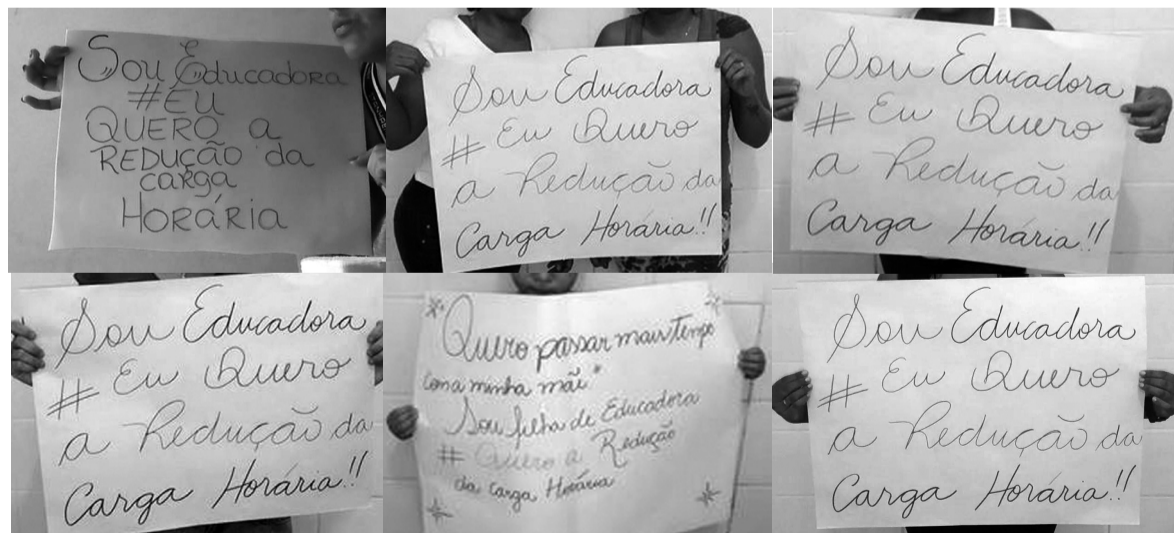 Sou Educadora
#EU
QUERO a
REDUÇÃO da
carga
HORÁRIA
Sou Educadora
# Eu Quero
a Redução da
Carga Horária!!
Sou Educadora
# Eu Quero
a Redução da
Carga Horária!!
Sou Educadora
# Eu Quero
a Redução da
Carga Horária!!
Quero passar mais tempo
com a minha mãe"
Sou filha de Educadora
# Quero a Redução
da carga Horária
Sou Educadora
# Eu Quero
a Redução da
Carga Horária!!